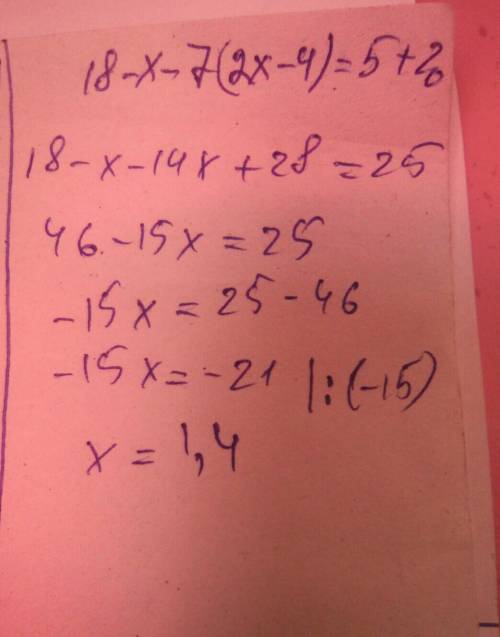 18-x-7(2x-4)=5+20
18-x-14x+28=25
46-15x=25
-15x=25-46
-15x=-21 |:(-15)
x=1,4